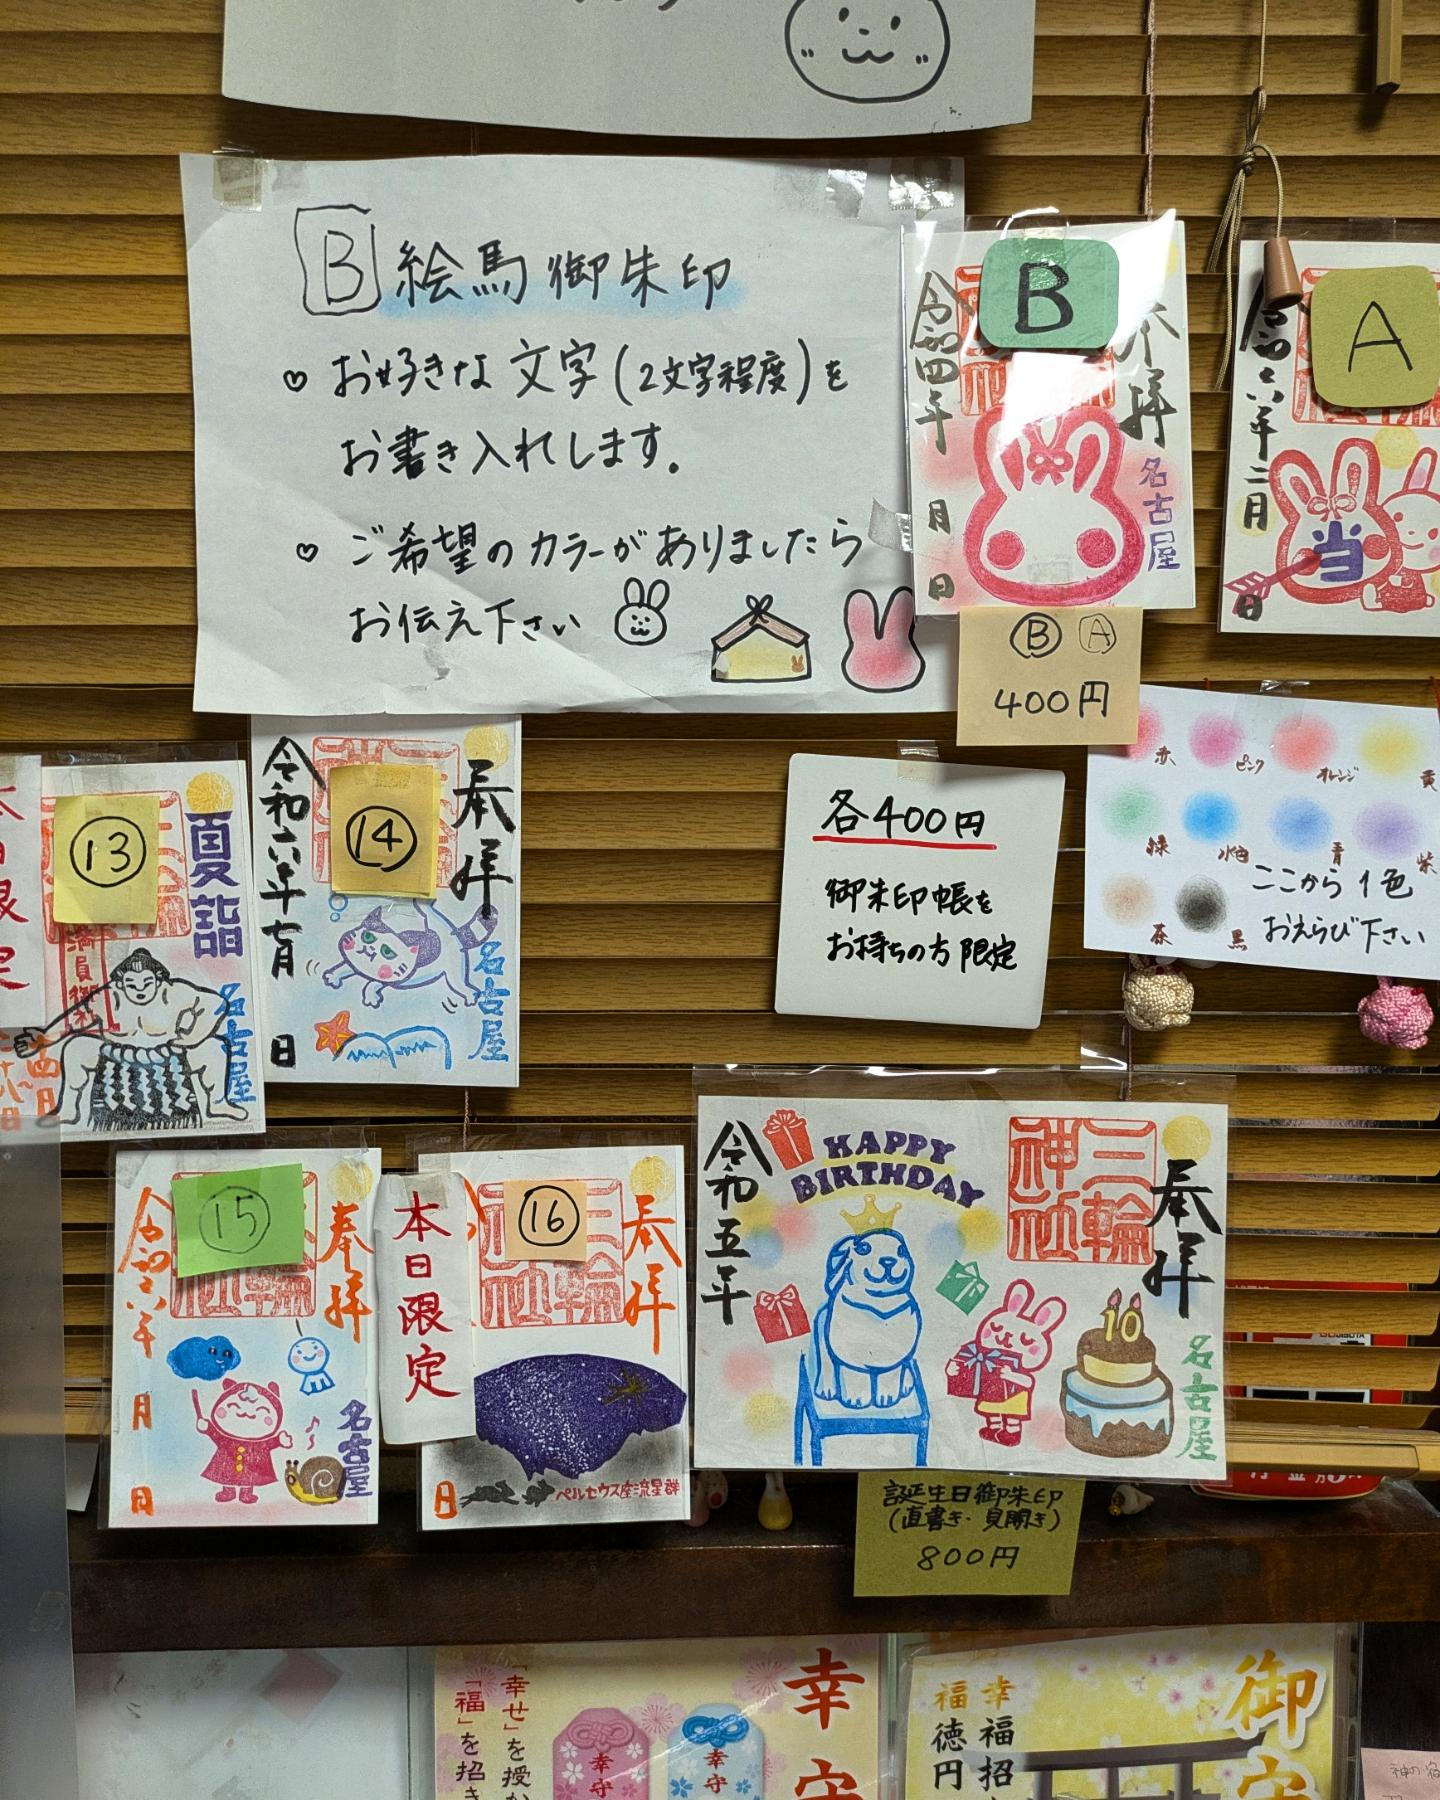 B 絵馬御朱印
♡ お好きな文字(2文字程度)を
お書き入れします。
♡ ご希望のカラーがありましたら
お伝え下さい
B
令和四年
月
日
奉拝
名古屋
A
令和六年二月
日
当
Ⓑ Ⓐ
400円
赤 ピンク オレンジ 黄
緑 水色 青 紫
茶 黒
ここから1色
おえらび下さい
各400円
御朱印帳を
お持ちの方限定
本日限定
⑬
夏詣
名古屋
満員御
⑭
令和六年七月
日
奉拝
名古屋
⑮
令和六年
月
日
奉拝
名古屋
本日限定
⑯
奉拝
日
ペルセウス座流星群
令和五年
HAPPY
BIRTHDAY
三輪
神社
奉拝
10
名古屋
誕生日御朱印
(直書き・見開き)
800円
「幸せ」を授か
「福」を招き
幸守
幸守
幸守
幸福招
福徳円
御守